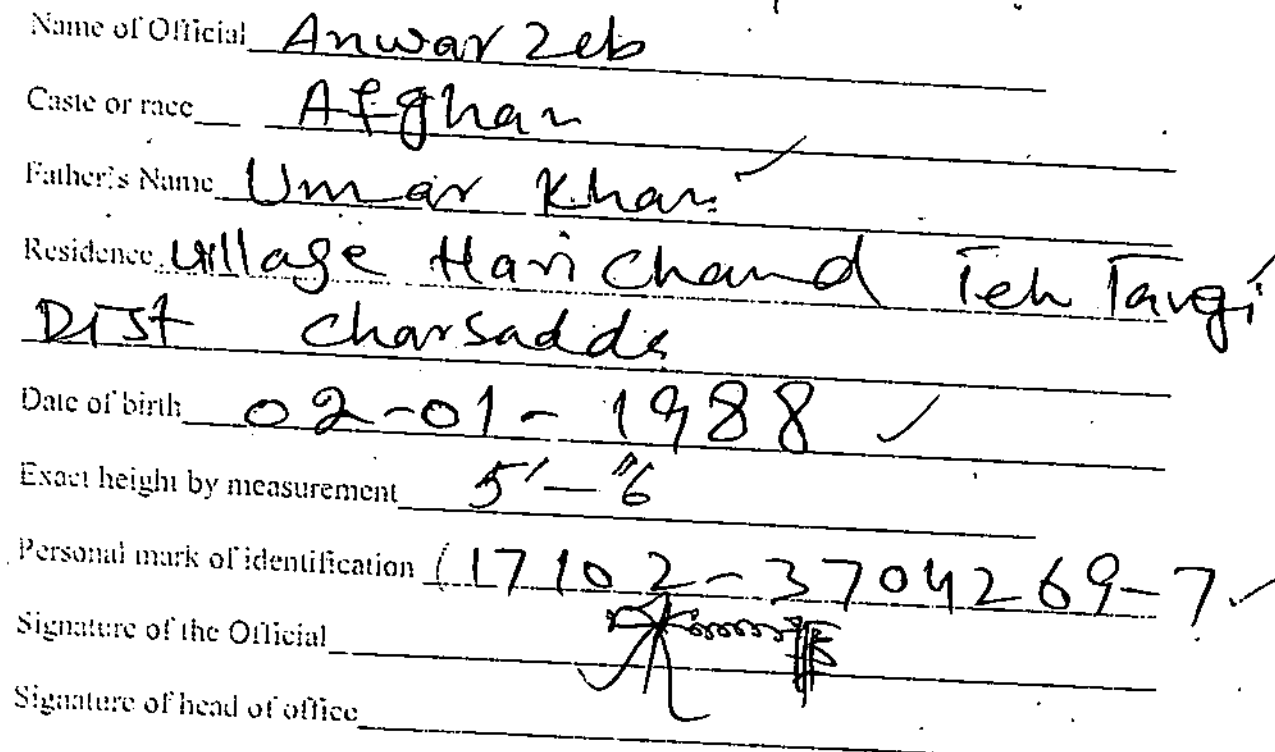 Name of Official Anwar Zeb
Caste or race Afghan
Father's Name Umar Khan
Residence Village Hari Chand Teh Tangi
Dist Charsadda
Date of birth 02-01-1988
Exact height by measurement 5'-"6
Personal mark of identification (17102-3704269-7
Signature of the Official
Signature of head of office